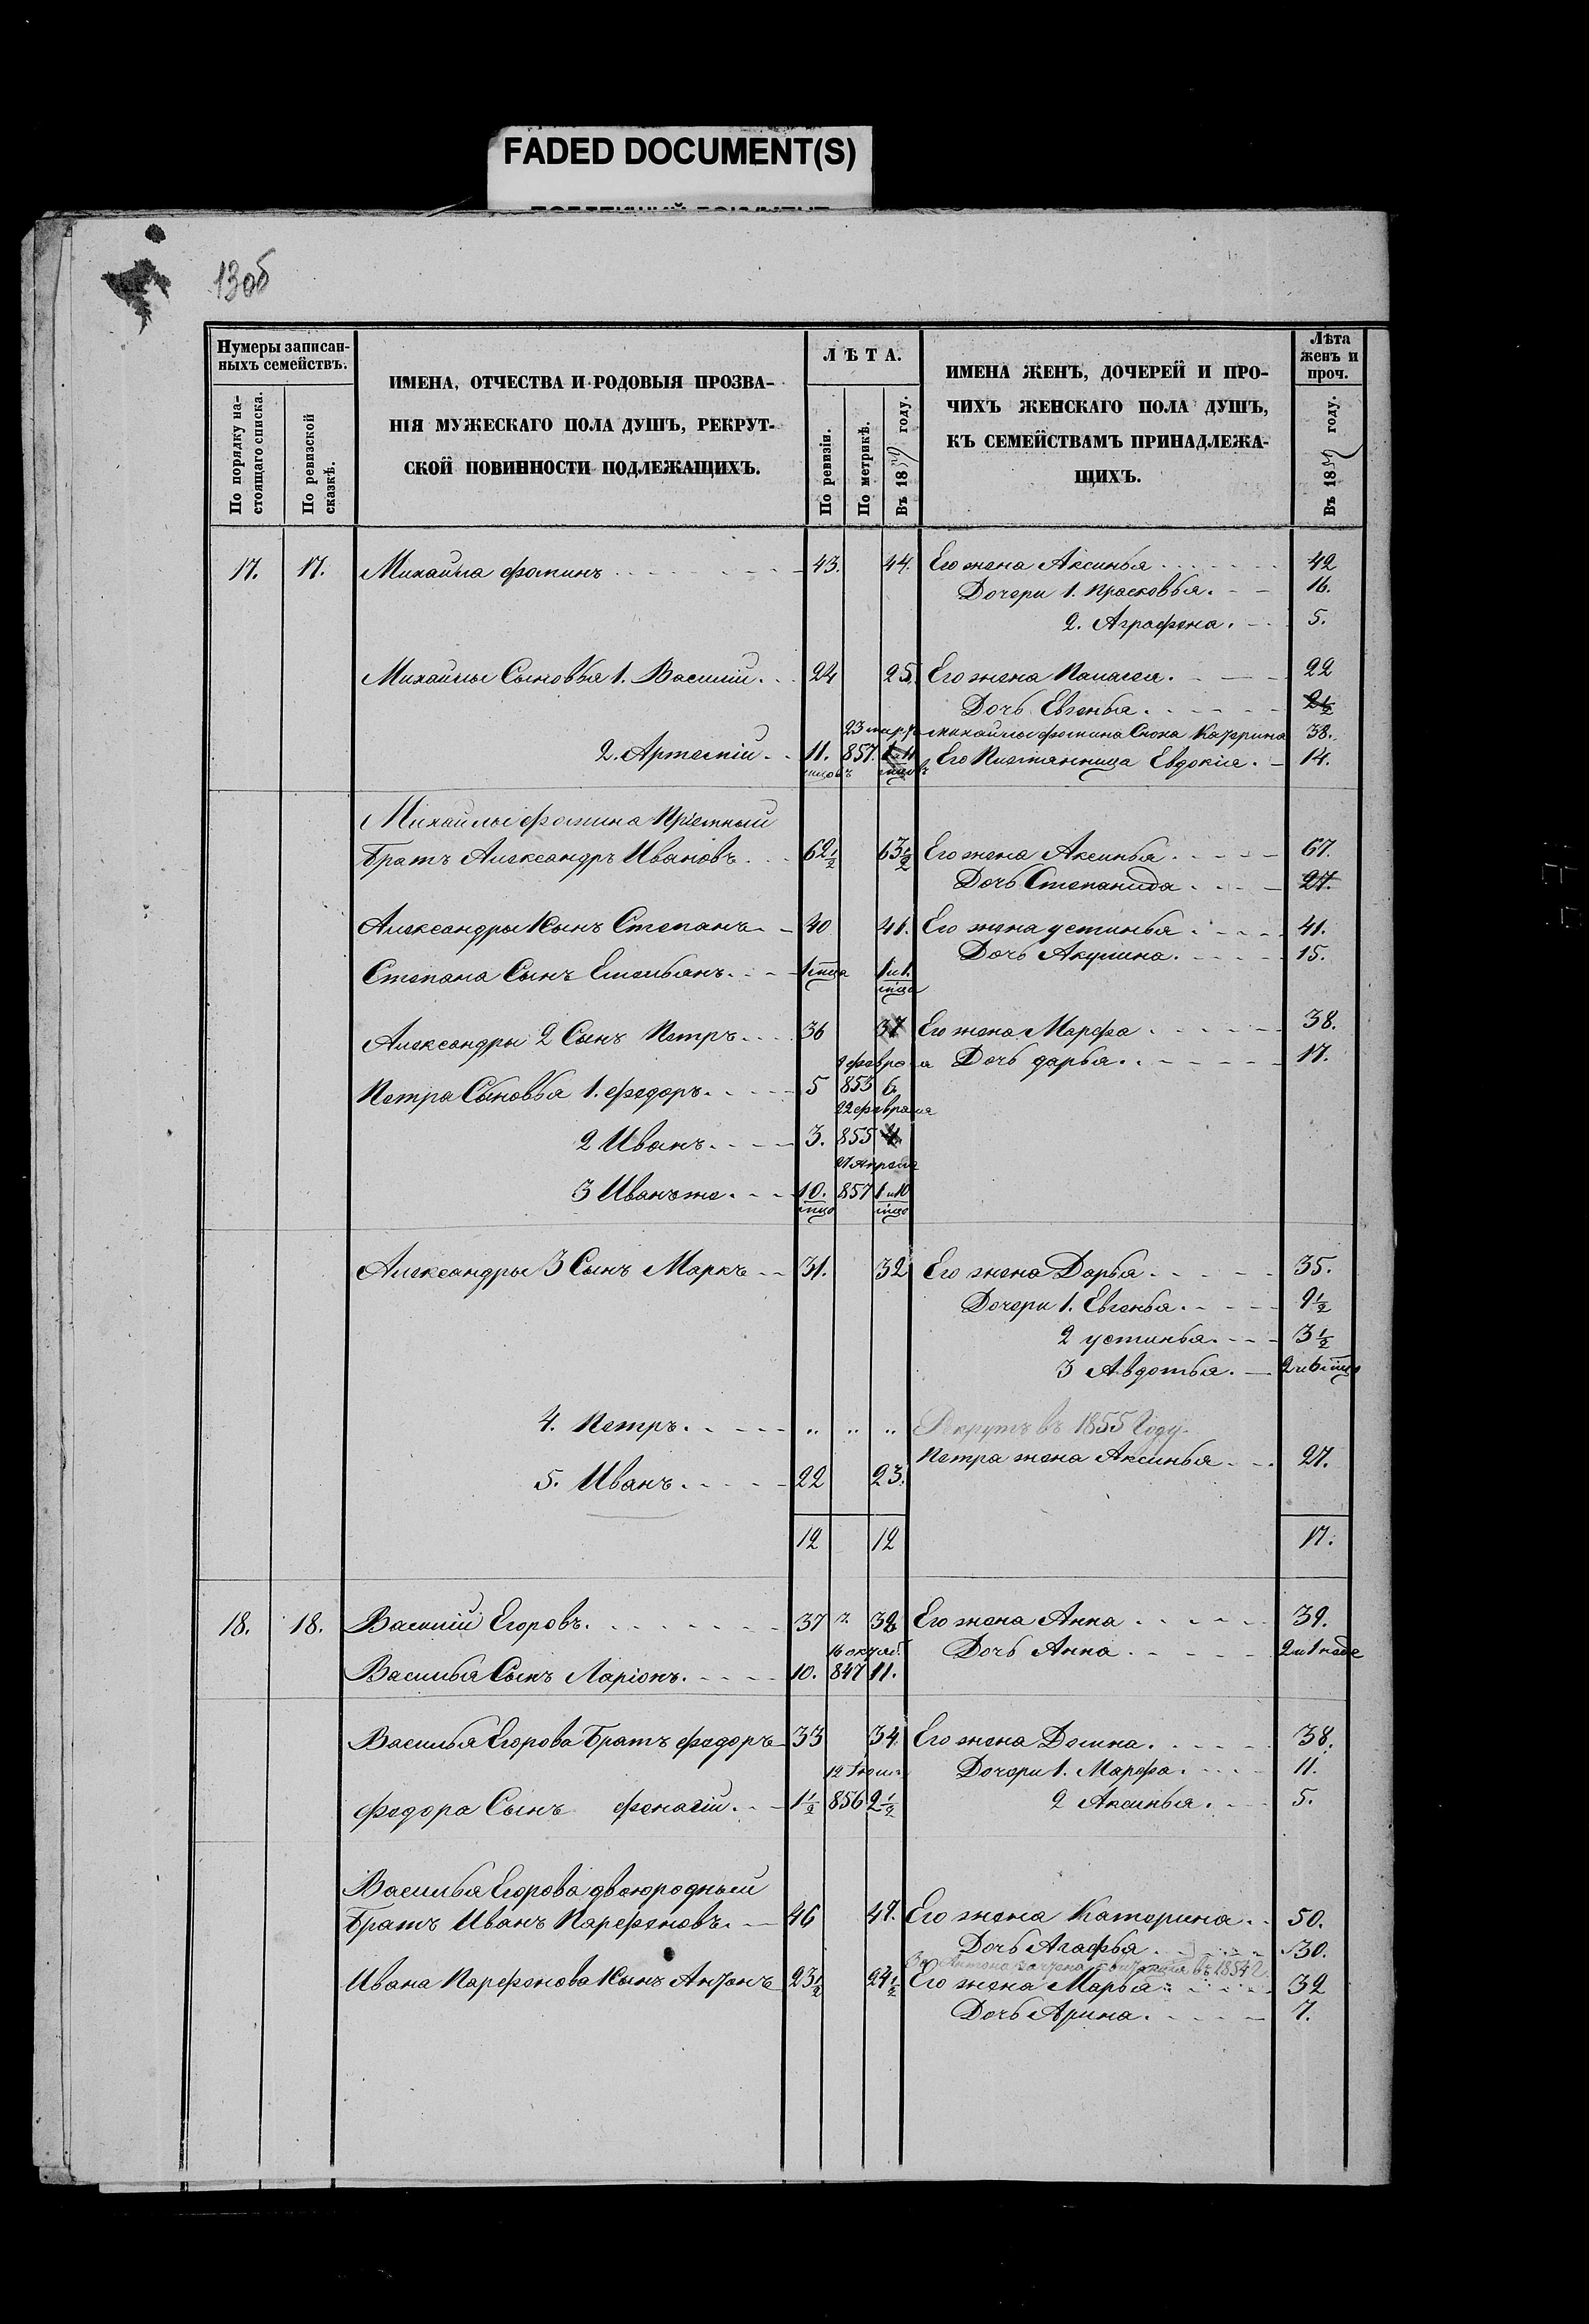 FADED DOCUMENT(S)
13об
Нумеры записан-
ныхъ семействъ.
По порядку на-
стоящаго списка.
По ревизской
сказкѣ.
ИМЕНА, ОТЧЕСТВА И РОДОВЫЯ ПРОЗВА-
НІЯ МУЖЕСКАГО ПОЛА ДУШЪ, РЕКРУТ-
СКОЙ ПОВИННОСТИ ПОДЛЕЖАЩИХЪ.
ЛѢТА.
По ревизіи.
По метрикѣ.
Въ 1859 году.
ИМЕНА ЖЕНЪ, ДОЧЕРЕЙ И ПРО-
ЧИХЪ ЖЕНСКАГО ПОЛА ДУШЪ,
КЪ СЕМЕЙСТВАМЪ ПРИНАДЛЕЖА-
ЩИХЪ.
Лѣта
женъ и
проч.
Въ 1859 году.
17. 17. Михайла фоминъ 43. 44. Его жена Аксинья 42
Дочери 1. Прасковья. 16.
2. Аграфена. 5.
Михайлы Сыновья 1. Василий. 24 25. Его жена Палагея. 22
Дочь Евгенья. 2 1/2
23 марта Михайлы фомина Сноха Катерина 38.
2. Артемій. 11. 857. 1 и 11 Его Племянница Евдокія. 14.
Михайлы фомина Пріемный
Братъ Александръ Ивановъ. 62 1/2 63 1/2 Его жена Аксинья. 67.
Дочь Степанида 27.
Александры 1 Сынъ Степанъ 40 41. Его жена устинья. 41.
Дочь Акулина. 15.
Степана Сынъ Емельянъ. 1 мца 1 и 1. мца
Александры 2 Сынъ Петръ. 36 37 Его жена Марфа 38.
9 февраля Дочь дарья. 17.
Петра Сыновья 1. федоръ. 5 853 6.
22 февраля
2 Иванъ. 3. 855 4.
27 Апреля
3 Иванъ же. 10. мцо 857 1 и 10 мцо
Александры 3 Сынъ Маркъ 31. 32 Его жена Дарья. 35.
Дочери 1. Евгенья. 9 1/2
2 устинья. 3 1/2
3 Авдотья. 2 и 6 мцо
4. Петръ. " " " Рекрутъ въ 1855 Году.
Петра жена Аксинья 27.
5. Иванъ. 22 23.
12 12 17.
18. 18. Василій Егоровъ. 37 38 Его жена Анна 39.
16 октяб. Дочь Анна 2 и 1 неде
Василья Сынъ Ларіонъ. 10. 847 11.
Василья Егорова Братъ федоръ 33 34. Его жена Домна. 38.
12 Іюля Дочери 1. Марфа. 11.
федора Сынъ фенагій. 1 1/2 856 2 1/2 2 Аксинья. 5.
Василья Егорова двоюродный
Братъ Иванъ Парфеновъ. 46 47. Его жена Катерина. 50.
Дочь Агафья 30.
въ 1854 г.
Ивана Парфенова 1 Сынъ Антонъ 23 1/2 24 1/2 Его жена Марья 32
Дочь Арина. 7.